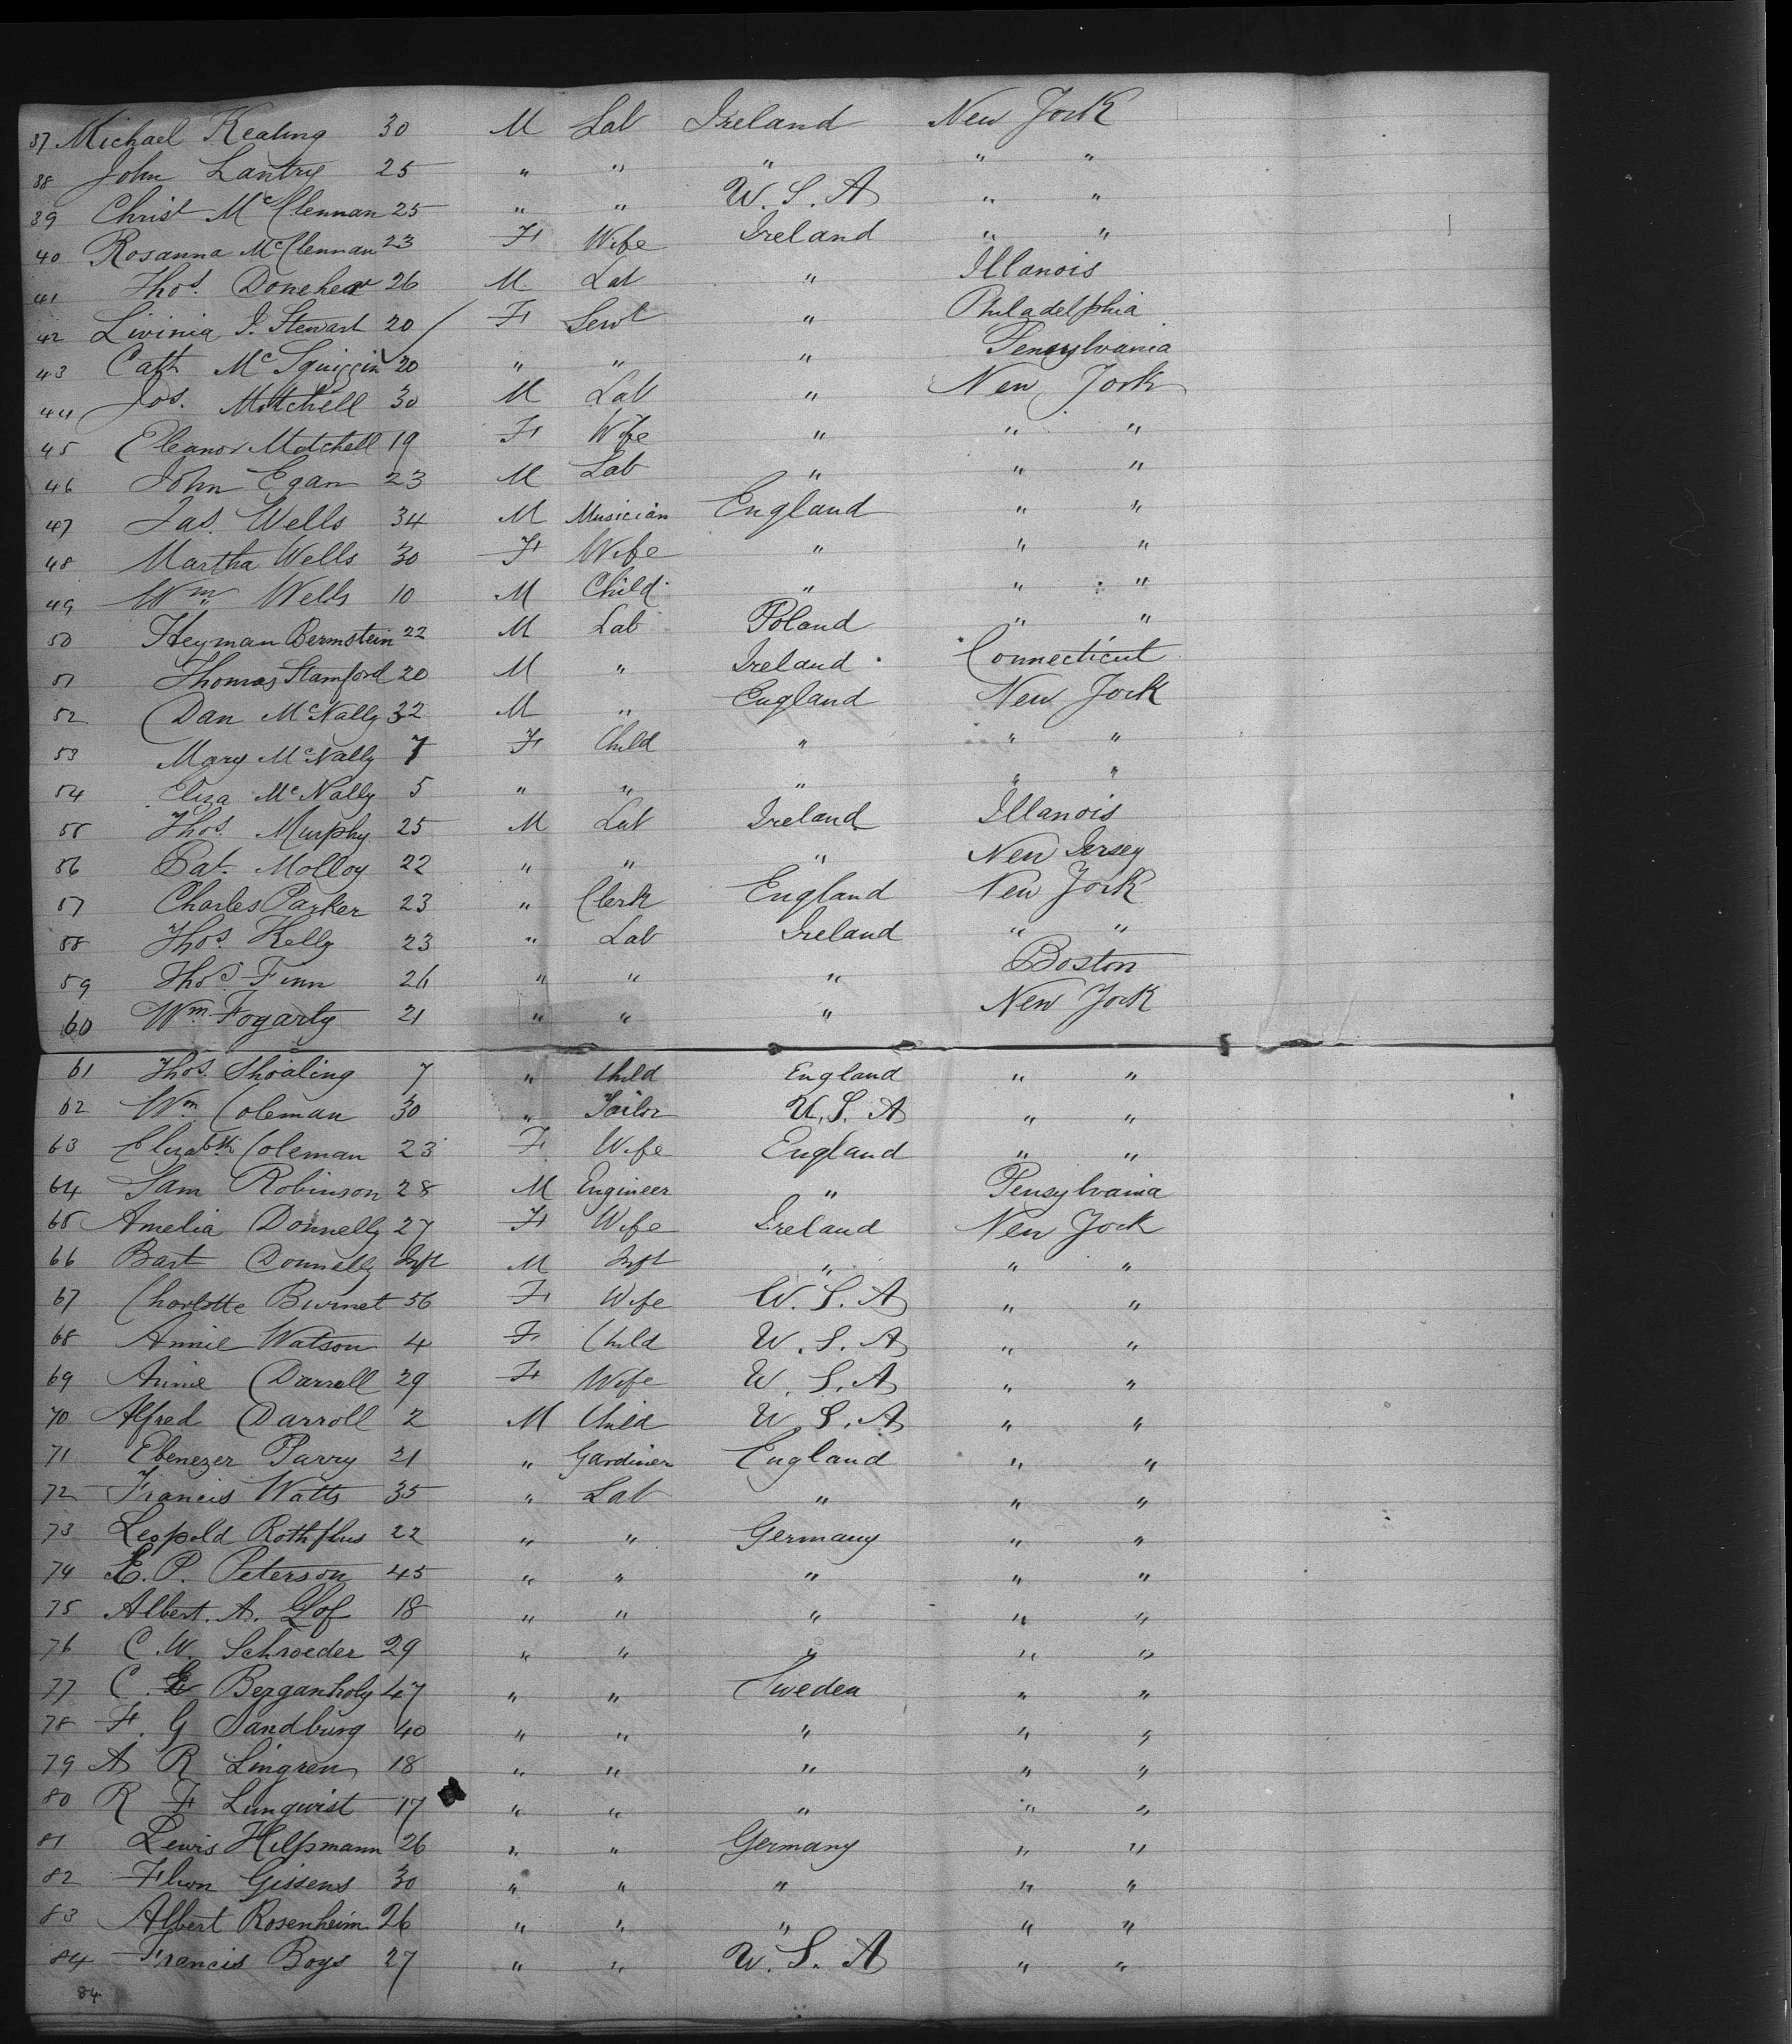 37 Michael Keating 30 M Lab Ireland New York
38 John Lantry 25 " " " " "
39 Christ McClennan 25 " " U.S.A " "
40 Rosanna McClennan 23 F Wife Ireland " "
41 Thos. Doneher 26 M Lab " Illanois
42 Livinia J. Stewart 20 / F Servt " Philadelphia
43 Cath McSquiggin 20 " " " Pensylvania
44 Jos. Mitchell 30 M Lab " New York
45 Eleanor Mitchell 19 F Wife " " "
46 John Egan 23 M Lab " " "
47 Jas. Wells 34 M Musician England " "
48 Martha Wells 30 F Wife " " "
49 Wm Wells 10 M Child " " "
50 Heyman Bernstein 22 M Lab Poland " "
51 Thomas Stamford 20 M " Ireland Connecticut
52 Dan McNally 32 M " England New York
53 Mary McNally 7 F Child " " "
54 Eliza McNally 5 " " " " "
55 Thos. Murphy 25 M Lab Ireland Illanois
56 Pat. Molloy 22 " " " New Jersey
57 Charles Parker 23 " Clerk England New York
58 Thos. Kelly 23 " Lab Ireland " "
59 Thos. Finn 26 " " " Boston
60 Wm Fogarty 21 " " " New York
61 Thos. Shoaling 7 " Child England " "
62 Wm Coleman 30 " Tailor U.S.A " "
63 Elizabth Coleman 23 F Wife England " "
64 Sam Robinson 28 M Engineer " Pensylvania
65 Amelia Donnelly 27 F Wife Ireland New York
66 Bart Donnelly Inft M Inft " " "
67 Charlotte Burnet 56 F Wife U.S.A " "
68 Annie Watson 4 F Child U.S.A " "
69 Annie Darroll 29 F Wife U.S.A " "
70 Alfred Darroll 2 M Child U.S.A " "
71 Ebenezer Parry 21 " Gardiner England " "
72 Francis Watts 35 " Lab " " "
73 Leopold Rothfhus 22 " " Germany " "
74 E. P. Peterson 45 " " " " "
75 Albert. A. Lof 18 " " " " "
76 C. W. Schroeder 29 " " " " "
77 C. Berganholy 47 " " Sweden " "
78 F. G Sandburg 40 " " " " "
79 A R Lingren 18 " " " " "
80 R F Lunqwist 17 " " " " "
81 Lewis Hilpmann 26 " " Germany " "
82 Gissens 30 " " " " "
83 Albert Rosenheim 26 " " " " "
84 Francis Boys 27 " " U.S.A " "
84